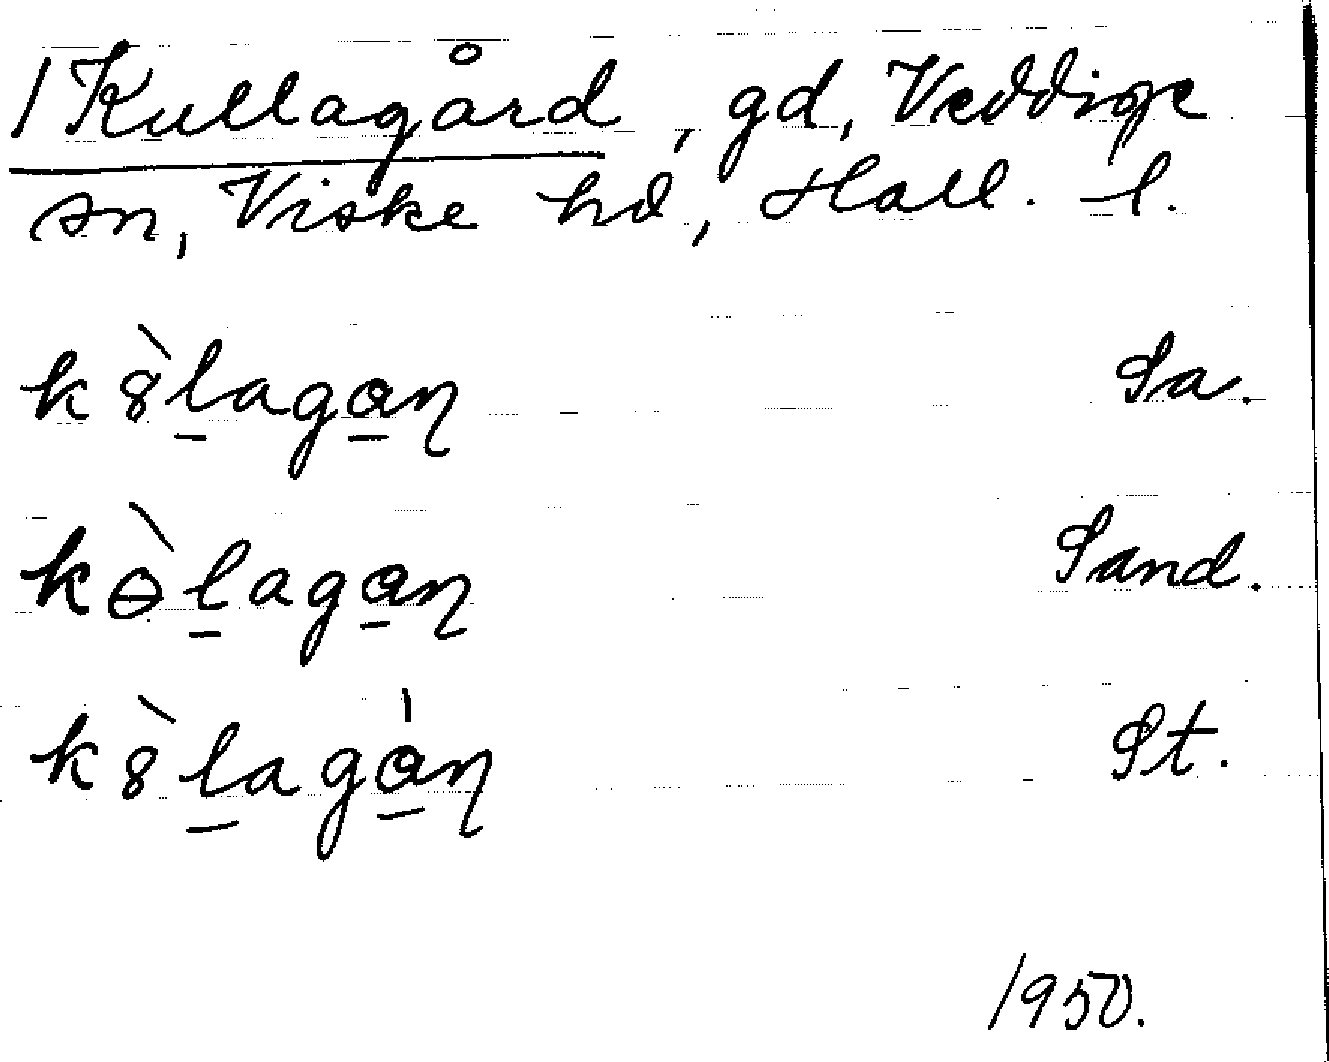 1 Kullagård, gd, Veddige
sn, Viske hd, Hall. l.
k8̀l̲aga̲ɳ Sa.
kɵ̀l̲aga̲ɳ Sand.
k8̀l̲agá̲ɳ St.
1950.